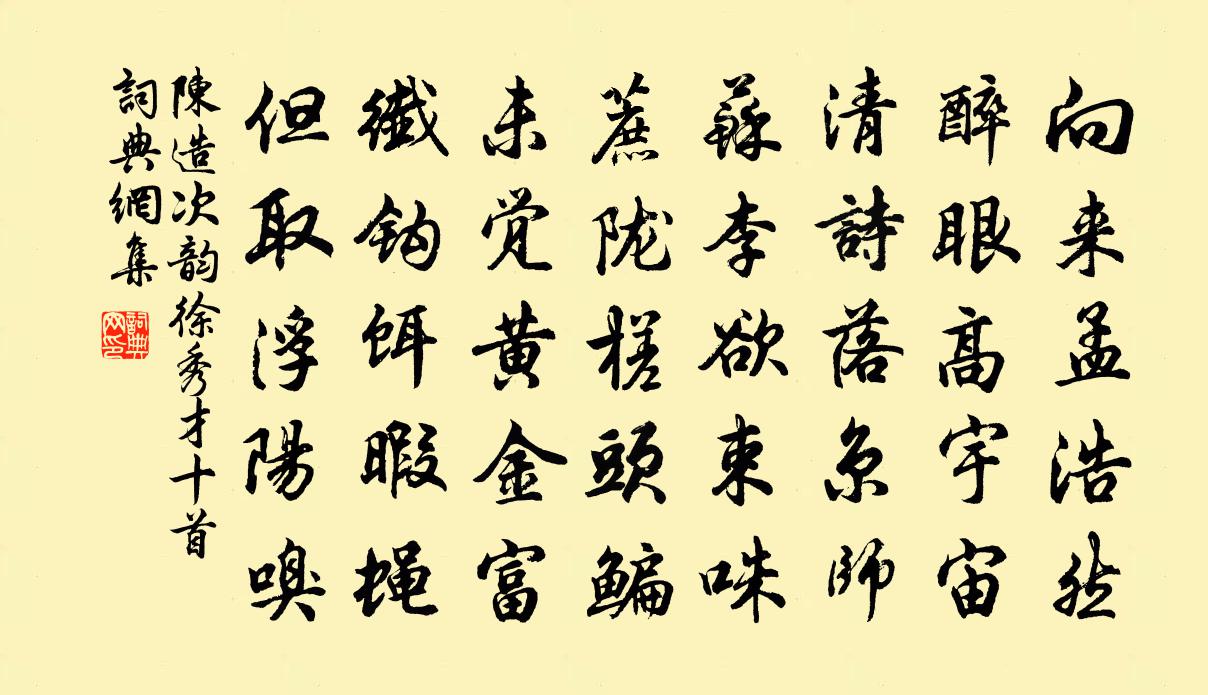 向来孟浩然
醉眼高宇宙
清詩落京師
蘇李欲束咮
蔗陇槎頭鳊
未觉黄金富
纖钩饵暇蝇
但取浮陽嗅
陳造次韵徐秀才十首
詞典網集
詞典网印